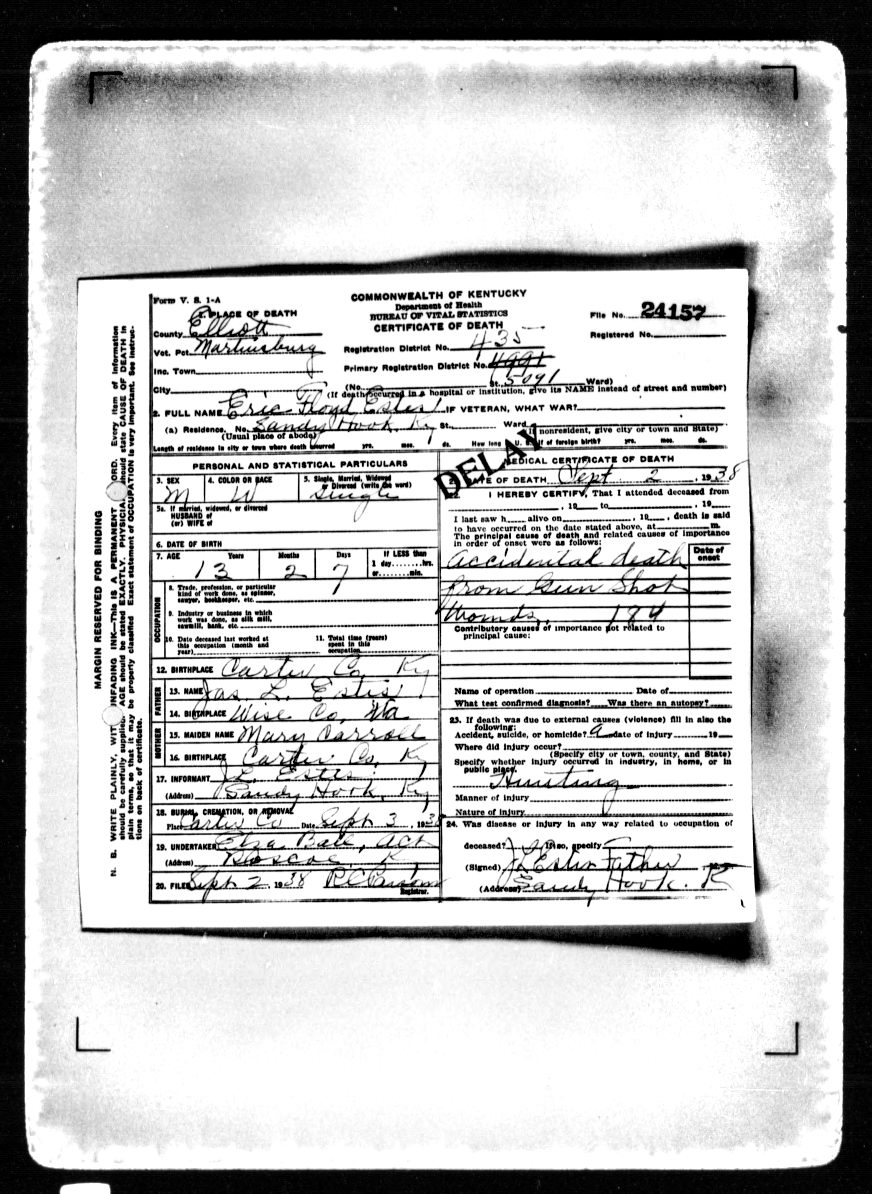 Form V. S. 1-A
COMMONWEALTH OF KENTUCKY
Department of Health
BUREAU OF VITAL STATISTICS
CERTIFICATE OF DEATH
File No. 24157
Registered No.
1. PLACE OF DEATH
County Elliott
Vot. Pct. Martinsburg
Inc. Town
City
Registration District No. 435
Primary Registration District No. 4991
5091
(No. St. Ward)
(If death occurred in a hospital or institution, give its NAME instead of street and number)
2. FULL NAME Eric Floyd Estes IF VETERAN, WHAT WAR?
(a) Residence. No. Sandy Hook, Ky St. Ward
(Usual place of abode) (If nonresident, give city or town and State)
Length of residence in city or town where death occurred yrs. mos. ds. How long in U. S. if of foreign birth? yrs. mos. ds.
DELAY
PERSONAL AND STATISTICAL PARTICULARS
3. SEX M
4. COLOR OR RACE W
5. Single, Married, Widowed or Divorced (write the word) Single
5a. If married, widowed, or divorced
HUSBAND of
(or) WIFE of
6. DATE OF BIRTH
7. AGE Years Months Days If LESS than
13 2 7 1 day hrs.
or min.
OCCUPATION
8. Trade, profession, or particular
kind of work done, as spinner,
sawyer, bookkeeper, etc.
9. Industry or business in which
work was done, as silk mill,
sawmill, bank, etc.
10. Date deceased last worked at
this occupation (month and
year)
11. Total time (years)
spent in this
occupation
12. BIRTHPLACE Carter Co, Ky
FATHER
13. NAME Jas. L. Estis
14. BIRTHPLACE Wise Co, Va
MOTHER
15. MAIDEN NAME Mary Carroll
16. BIRTHPLACE Carter Co, Ky
17. INFORMANT J L Estes
(Address) Sandy Hook, Ky
18. BURIAL, CREMATION, OR REMOVAL
Place Carter Co Date Sept 3, 1938
19. UNDERTAKER Elza Ball, Act
(Address) Roscoe, Ky
20. FILED Sept 2 1938 R C Parsons
Registrar.
MEDICAL CERTIFICATE OF DEATH
DATE OF DEATH Sept 2, 1938
I HEREBY CERTIFY, That I attended deceased from
, 19 to , 19
I last saw h alive on , 19 , death is said
to have occurred on the date stated above, at m.
The principal cause of death and related causes of importance
in order of onset were as follows:
Date of onset
Accidental death
from Gun Shot
Wounds. 184
Contributory causes of importance not related to
principal cause:
Name of operation Date of
What test confirmed diagnosis? Was there an autopsy?
23. If death was due to external causes (violence) fill in also the
following:
Accident, suicide, or homicide? A date of injury 19
Where did injury occur?
(Specify city or town, county, and State)
Specify whether injury occurred in industry, in home, or in
public place.
Hunting
Manner of injury
Nature of injury
24. Was disease or injury in any way related to occupation of
deceased? If so, specify
(Signed) J L Estes Father
(Address) Sandy Hook. K
MARGIN RESERVED FOR BINDING
N. B. WRITE PLAINLY, WITH UNFADING INK—THIS IS A PERMANENT RECORD. Every item of information
should be carefully supplied. AGE should be stated EXACTLY. PHYSICIANS should state CAUSE OF DEATH in
plain terms, so that it may be properly classified. Exact statement of OCCUPATION is very important. See instruc-
tions on back of certificate.